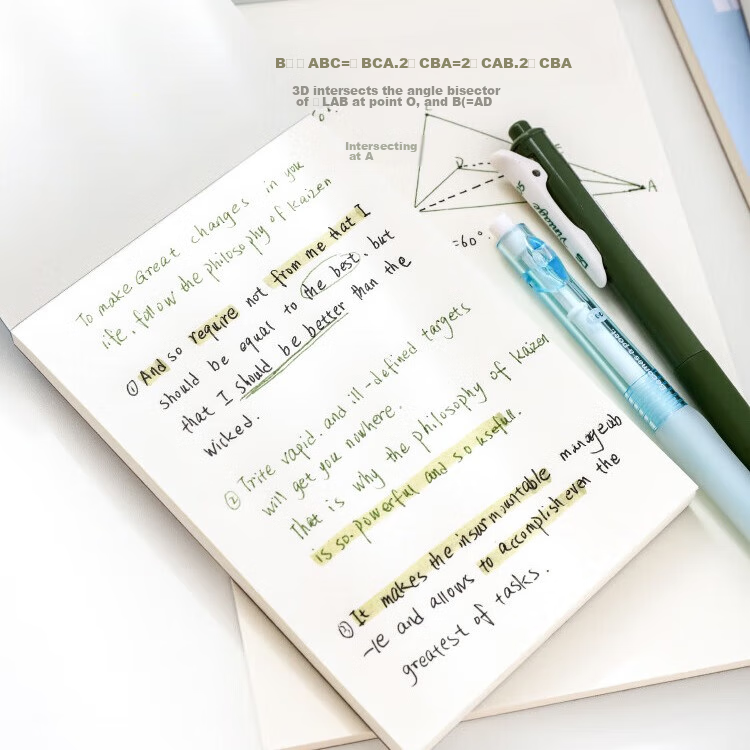 B ABC= BCA.2 CBA=2 CAB.2 CBA
3D intersects the angle bisector
of LAB at point O, and B(=AD
Intersecting
at A
A
=60°
To make Great changes in you
life. follow the philosophy of kaizen
① And so require not from me that I
should be equal to the best. but
that I should be better than the
wicked.
② Trite vapid. and ill-defined targets
will get you nowhere.
That is why the philosophy of kaizen
is so. powerful and so usefull.
③ It makes the insurmountable manageab
-le and allows to accomplish even the
greatest of tasks.
Vintage